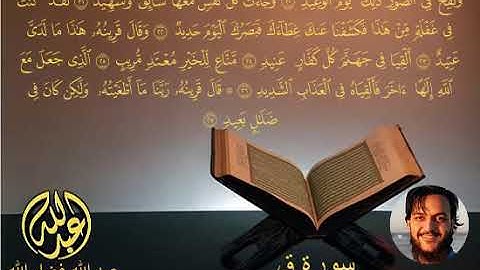 وَنُفِخَ فِي ٱلصُّورِ ذَٰلِكَ يَوْمُ ٱلْوَعِيدِ ٢٠ وَجَآءَتْ كُلُّ نَفْسٍ مَّعَهَا سَآئِقٌ وَشَهِيدٌ ٢١ لَّقَدْ كُنتَ
فِي غَفْلَةٍ مِّنْ هَٰذَا فَكَشَفْنَا عَنكَ غِطَآءَكَ فَبَصَرُكَ ٱلْيَوْمَ حَدِيدٌ ٢٢ وَقَالَ قَرِينُهُۥ هَٰذَا مَا لَدَىَّ
عَتِيدٌ ٢٣ أَلْقِيَا فِي جَهَنَّمَ كُلَّ كَفَّارٍ عَنِيدٍ ٢٤ مَّنَّاعٍ لِّلْخَيْرِ مُعْتَدٍ مُّرِيبٍ ٢٥ ٱلَّذِي جَعَلَ مَعَ
ٱللَّهِ إِلَٰهًا ءَاخَرَ فَأَلْقِيَاهُ فِي ٱلْعَذَابِ ٱلشَّدِيدِ ٢٦ ۞ قَالَ قَرِينُهُۥ رَبَّنَا مَآ أَطْغَيْتُهُۥ وَلَٰكِن كَانَ فِي
ضَلَٰلٍ بَعِيدٍ ٢٧
عبدالله
سورة ق